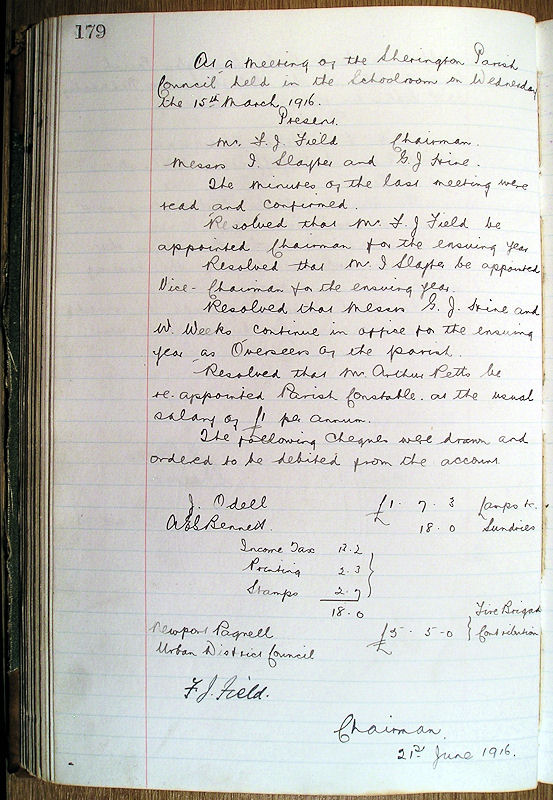 179
At a meeting of the Sherington Parish
Council held in the Schoolroom on Wednesday
the 15th March 1916.
Present.
Mr. F. J. Field Chairman.
Messrs I. Slayter and G. J Hine.
The minutes of the last meeting were
read and confirmed.
Resolved that Mr. F. J Field be
appointed Chairman for the ensuing year
Resolved that Mr. I Slayter be appointed
Vice-Chairman for the ensuing year.
Resolved that Messrs G. J. Hine and
W. Weeks continue in office for the ensuing
year as Overseers of the parish.
Resolved that Mr. Arthur Petts be
re-appointed Parish Constable at the usual
salary of £1 per annum.
The following cheques were drawn and
ordered to be debited from the account
J. Odell £1. 7. 3 Lamps &c.
Bennett. 18. 0 Sundries
Income Tax 13.2
Printing 2.3
Stamps 2.7
18.0
Newport Pagnell £5. 5-0 Fire Brigade Contribution
Urban District Council
F. J. Field.
Chairman.
21st June 1916.